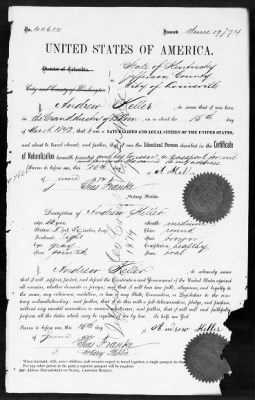 No. 40614 Issued June 19/74
UNITED STATES OF AMERICA.
State of Kentucky
District of Columbia, Jefferson County
City and County of Washington City of Louisville
I, Andrew Heller, do swear that I was born
in the Grand duchy of on the 15th day of
March 1842, that I am a NATURALIZED AND LOYAL CITIZEN OF THE UNITED STATES,
and about to travel abroad; and further, that I am the Identical Person described in the Certificate
of Naturalization herewith presented
Sworn to before me, this 16th day of A. Heller
June 1874
Chas Franke
Notary Public.
Description of Andrew Heller
Age: 32 years Mouth: medium
Stature: 5 feet inches, Eng. Chin: round
Forehead: high Hair: brown
Eyes: gray Complexion: healthy
Nose: pointed Face: oval
I, Andrew Heller, do solemnly swear
that I will support, protect, and defend the Constitution and Government of the United States against
all enemies, whether domestic or foreign; and that I will bear true faith, allegiance, and loyalty to
the same, any ordinance, resolution, or law of any State, Convention, or Legislature to the con-
trary notwithstanding; and further, that I do this with a full determination, pledge, and purpose,
without any mental reservation or evasion whatsoever; and further, that I will well and faithfully
perform all the duties which may be required of me by law. So help me God.
Sworn to before me, this 16th day
of June 1874 Andrew Heller
Chas Franke
Notary Public.